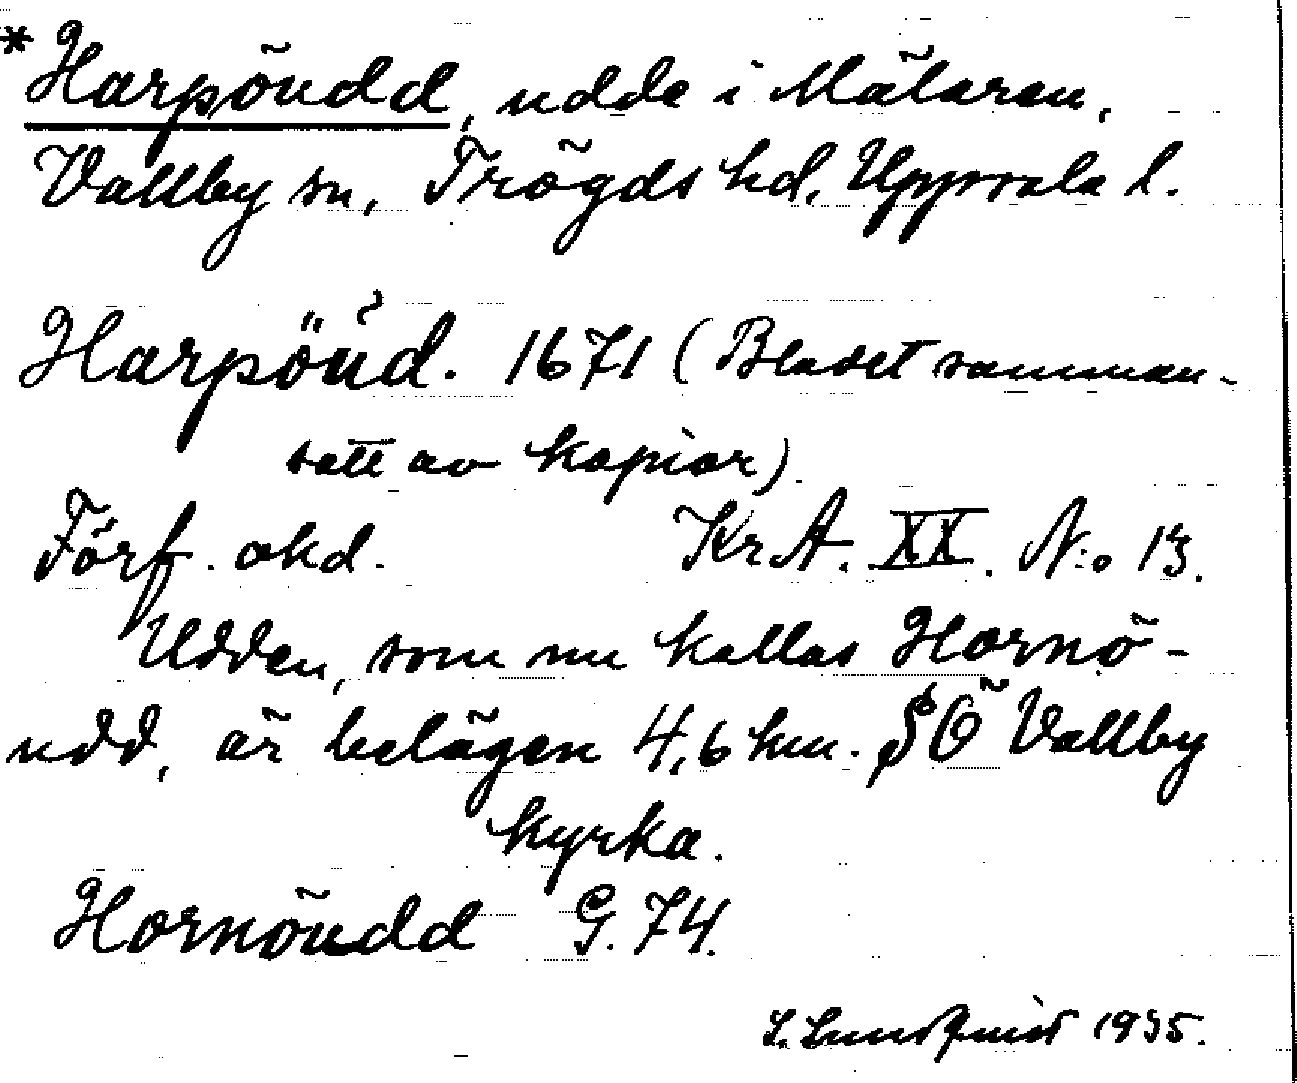 *Harpöudd, udde i Mälaren,
Vallby sn, Trögds hd, Uppsala l.
Harpöŭd. 1671 (Bladet samman-
satt av kopior)
Förf. okd. KrA. XX. N:o 13.
Udden, som nu kallas Hornö-
udd, är belägen 4,6 km. SÖ Vallby
kyrka.
Hornöudd G. 74.
S. Lundqvist 1935.